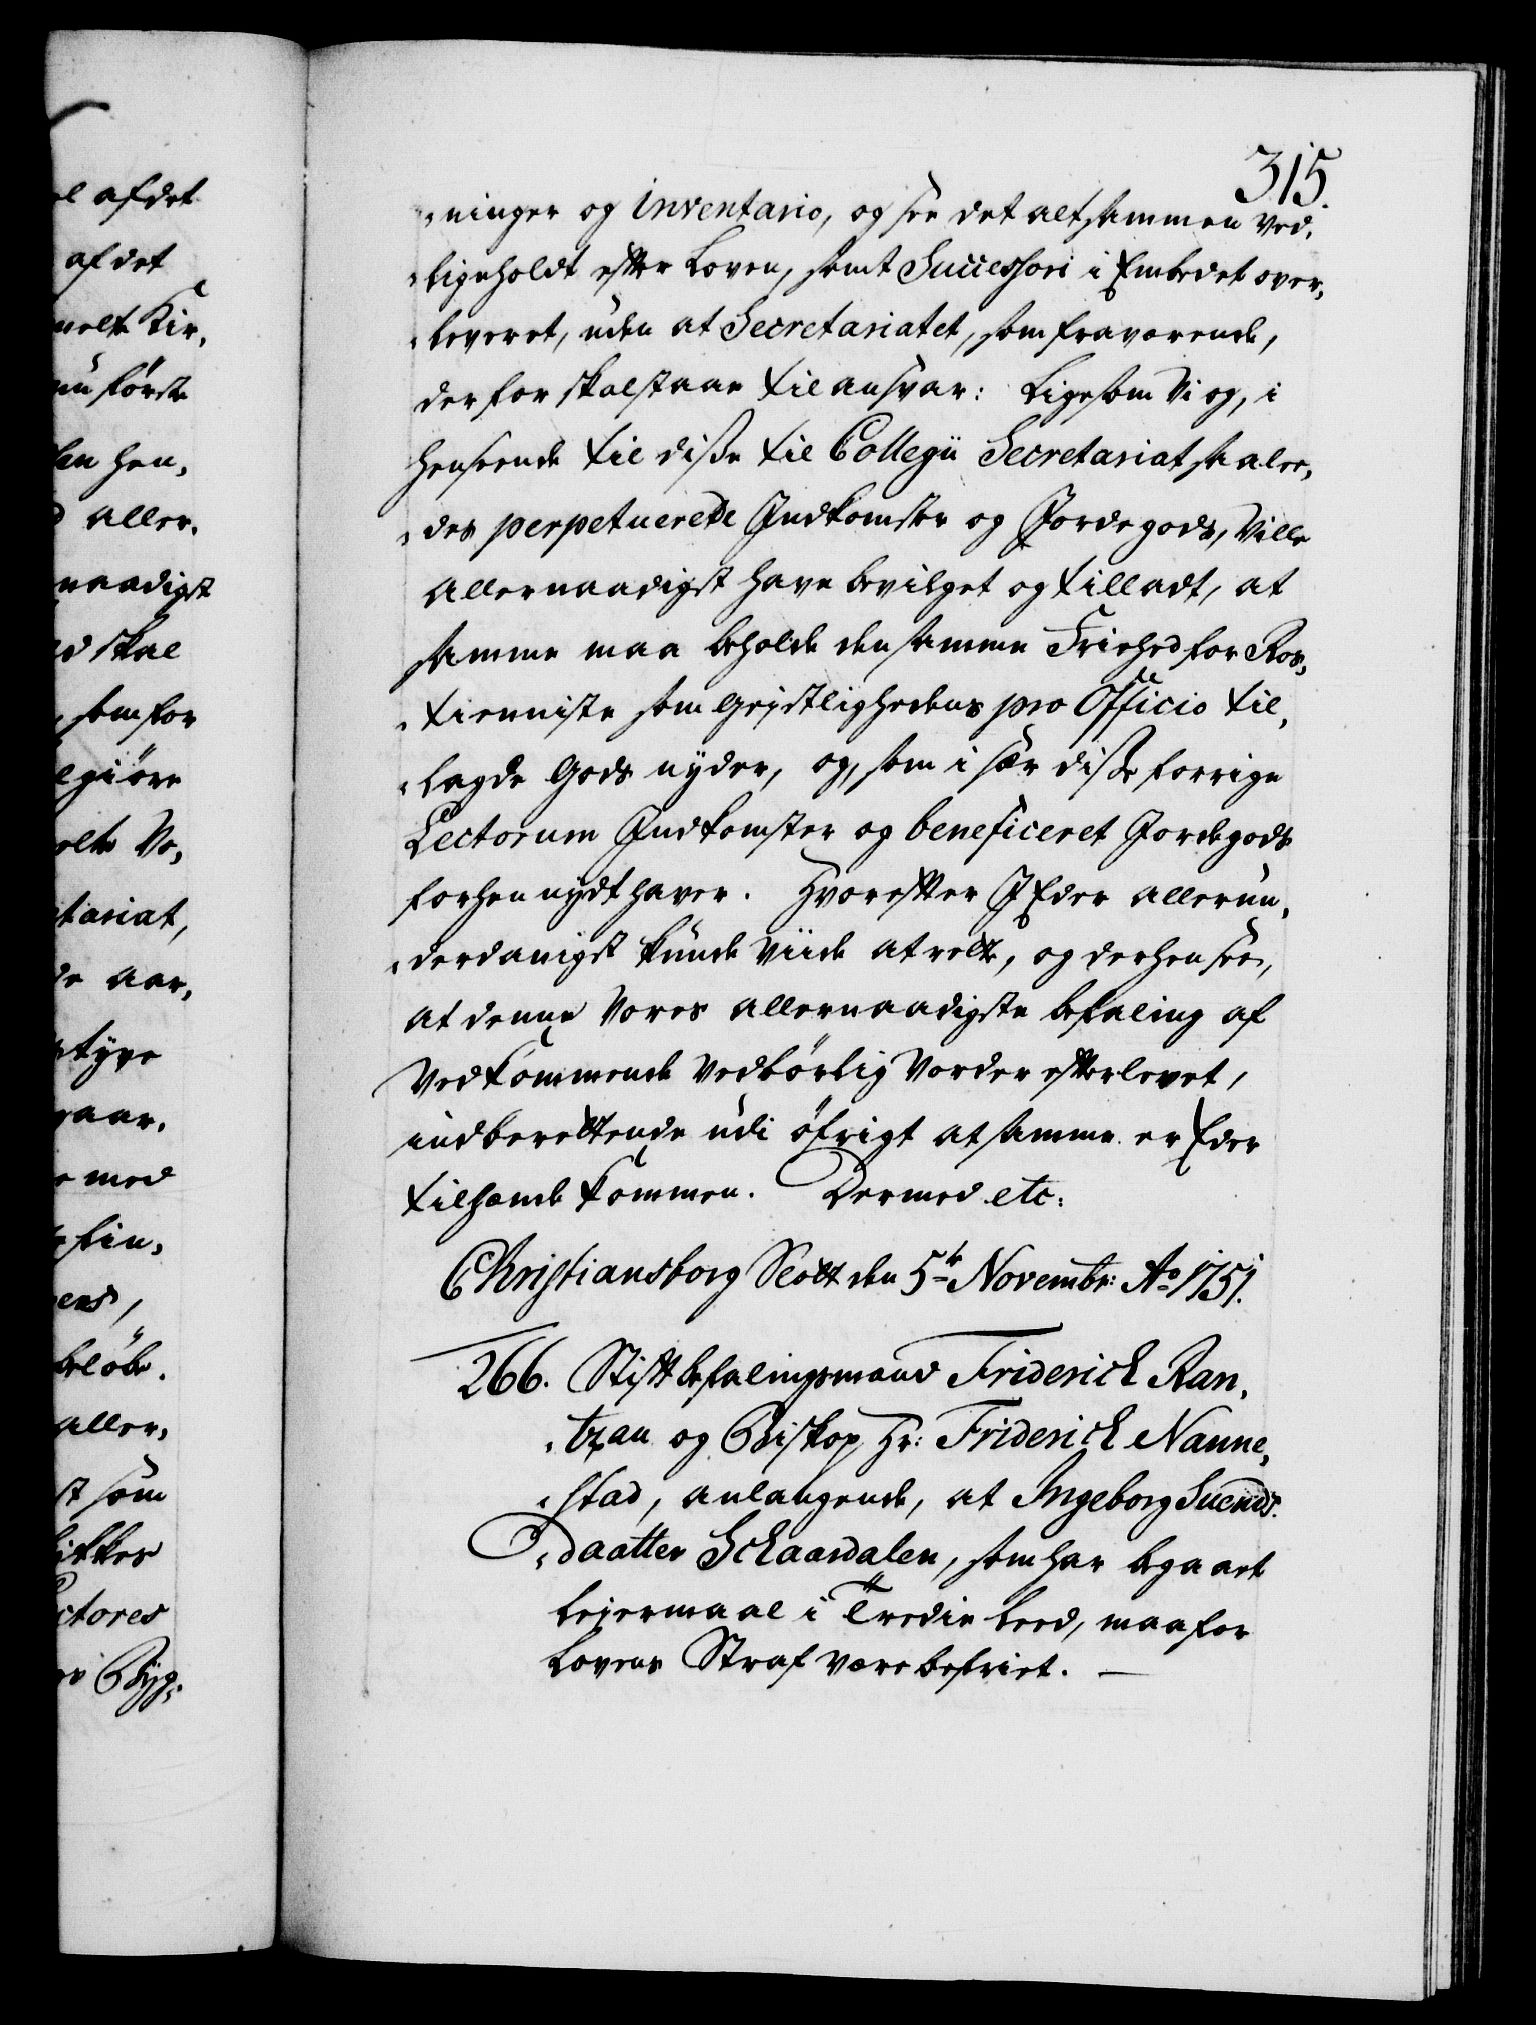 el af det
af det
melte Kir,
nu første
hen,
aller,
naadigst
ad skal
som for
elgiöre
elte Ve,
tariat,
de aar,
tyve
gaar,
e med
fin,
ens,
beløbe.
aller,
st som
kikker
ctores
er Byg:
315.
"ninger og inventario, og see det altsammen ved,
"ligeholdt efter Loven, samt Successori i Embedet over,
"leveret, uden at Secretariatet, som fraværende,
derfor skal staae til ansvar: Ligesom Vi og, i
henseende til disse til Collegii Secretariat saalee,
"des perpetuerede Indkomster og Jordegods, Ville
allernaadigst have bevilget og tilladt, at
samme maa beholde den samme Friehed for Ros,
"tienniste som Geistlighedens pro Officio til,
"lagde Gods nyder, og, som i sær disse forrige
Lectorum Indkomster og beneficeret Jordegods
forhen nydt haver. Hvorefter I Eder allerun,
"derdanigst kunde viide at rette, og derhen see,
at denne Vores allernaadigste befaling af
Vedkommende Vedbørlig vorder efterlevet,
indberettende udi öfrigt at samme er Eder
tilhænde kommen. Dermed etc:
Christiansborg Slott den 5te Novembr: Ao 1751.
266. Stiftbefalingsmand Friderich Ran,
"tzau og Biskop Hr: Friderich Nanne,
"stad, anlangende, at Ingeborg Suends:
"daatter Schaardalen, som har begaaet
Leiermaal i Tredie Leed, maa for
Lovens Straf være befriet. —